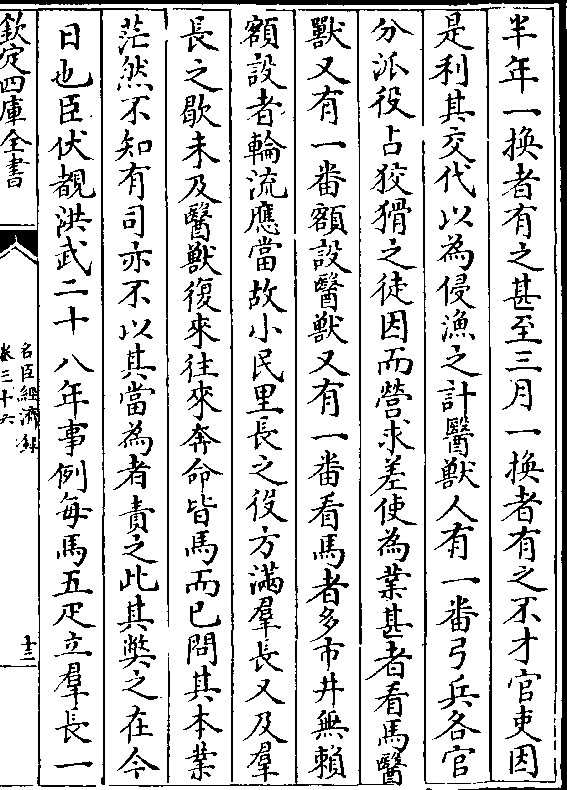 半年一換者有之甚至三月一換者有之不才官吏因
是利其交代以為侵漁之計醫獸人有一番弓兵各官
分派役占狡猾之徒因而營求差使為業甚者看馬醫
獸又有一番額設醫獸又有一番看馬者多市井無賴
額設者輪流應當故小民里長之役方滿羣長又及羣
長之歇未及醫獸復來往來奔命皆馬而已問其本業
茫然不知有司亦不以其當為者責之此其弊之在今
日也臣伏覩洪武二十八年事例每馬五疋立羣長一
欽定四庫全書
名臣經濟錄
卷三十六
十三